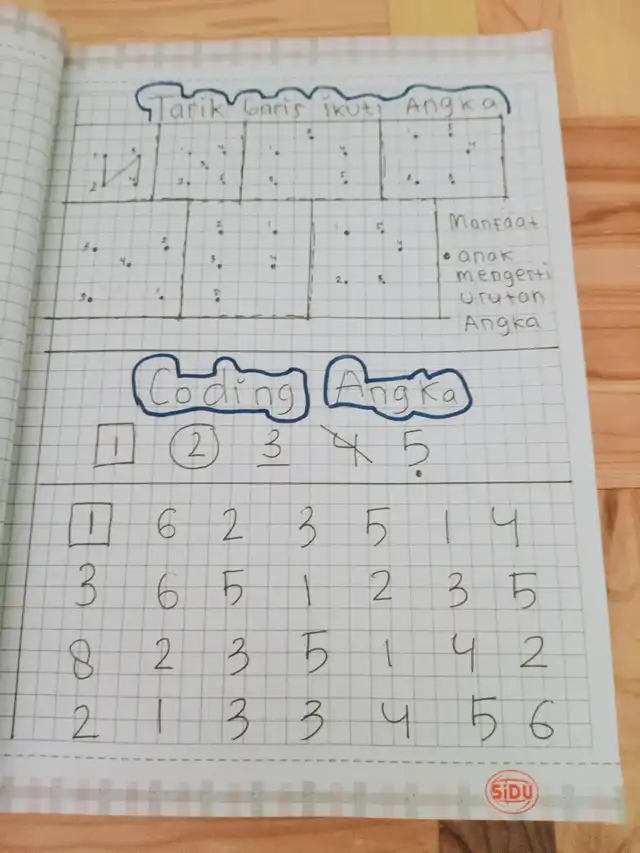 Tarik Garis ikuti Angka
Manfaat
• anak
mengerti
urutan
Angka
Coding Angka
1 2 3 4 5
1 6 2 3 5 1 4
3 6 5 1 2 3 5
8 2 3 5 1 4 2
2 1 3 3 4 5 6
SiDU